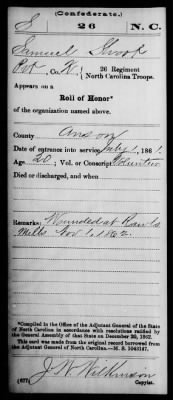 (Confederate.)
S 26 N.C.
Samuel Swoop
Pvt, Co. K, 26 Regiment
North Carolina Troops.
Appears on a
Roll of Honor*
of the organization named above.
County Anson
Date of entrance into service July 1, 1861.
Age, 20; Vol. or Conscript Volunteer
Died or discharged, and when
Remarks: Wounded at Rawls
Mills Nov. 1. 1862.
*Compiled in the Office of the Adjutant General of the State
of North Carolina in accordance with resolutions ratified by
the General Assembly of that State on December 20, 1862.
This card was made from the original record borrowed from
the Adjutant General of North Carolina.—M. S.
(627) J W Wilkinson
Copyist.